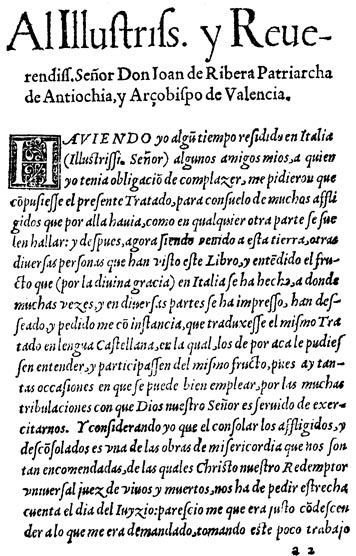 Al Illustriſs. y Reue-
rendiſſ. Señor Don Ioan de Ribera Patriarcha
de Antiochia, y Arçobiſpo de Valencia.
HAVIENDO yo algũ tiempo reſidido en Italia
(Illuſtriſſi. Señor) algunos amigos mios, a quien
yo tenia obligaciõ de complazer, me pidierou que
cõpuſieſſe el preſente Tratado, para conſuelo de muchos affli
gidos que por alla hauia, como en qualquier otra parte ſe ſue
len hallar: y deſpues, agora ſiendo venido a eſta tierra, otras
diuerſas perſonas que han viſto eſte Libro, y entẽdido el fru-
cto que (por la diuina gracia) en Italia ſe ha hecho, a donde
muchas vezes, y en diuerſas partes ſe ha impreſſo, han deſ-
ſeado, y pedido me cõ inſtancia, que traduxeſſe el miſmo Tra
tado en lengua Caſtellana, en la qual, los de por aca le pudieſ
ſen entender, y participaſſen del miſmo fructo, pues ay tan-
tas occaſiones en que ſe puede bien emplear, por las muchas
tribulaciones con que Dios nueſtro Señor es ſeruido de exer-
citarnos. Y conſiderando yo que el conſolar los affligidos, y
deſcõſolados es vna de las obras de miſericordia que nos ſon
tan encomendadas, de las quales Chriſto nueſtro Redemptor
vniuerſal juez de viuos y muertos, nos ha de pedir eſtrecha
cuenta el dia del Iuyzio: pareſcio me que era juſto cõdeſcen
der a lo que me era demandado, tomando eſte poco trabajo
a 2